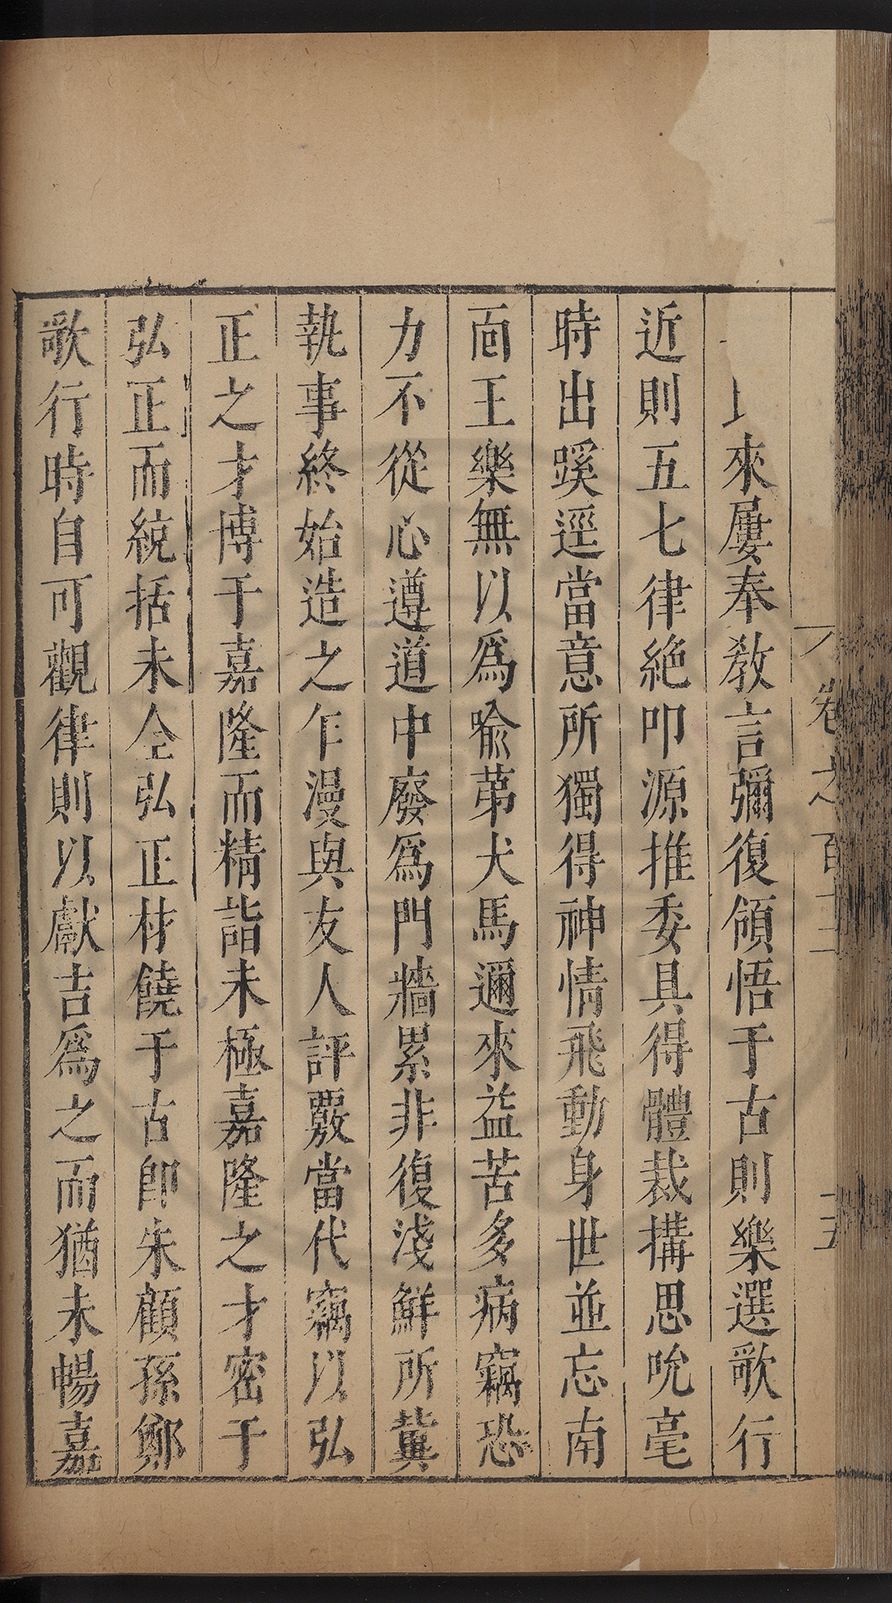 來屢奉教言彌復領悟于古則樂選歌行
近則五七律絶叩源推委具得體裁搆思吮毫
時出蹊逕當意所獨得神情飛動身世並忘南
面王樂無以爲喻苐犬馬邇來益苦多病竊恐
力不從心遵道中廢爲門牆累非復淺鮮所冀
執事終始造之乍漫與友人評覈當代竊以弘
正之才博于嘉隆而精詣未極嘉隆之才密于
弘正而統括未仝弘正材饒于古即朱顧孫鄭
歌行時自可觀律則以獻吉爲之而猶未暢嘉
卷之百十二
十五